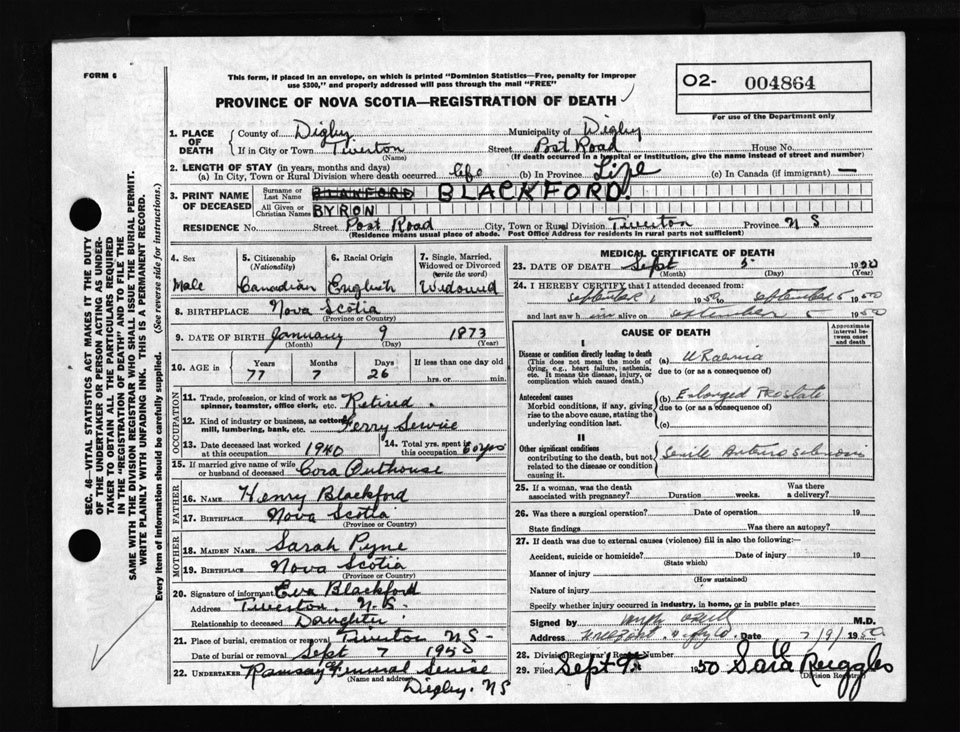 FORM 6
This form, if placed in an envelope, on which is printed "Dominion Statistics—Free, penalty for improper
use $300," and properly addressed will pass through the mail "FREE"
O2- 004864
PROVINCE OF NOVA SCOTIA—REGISTRATION OF DEATH
For use of the Department only
1. PLACE OF DEATH { County of Digby Municipality of Digby
If in City or Town Tiverton (Name) Street Post Road House No.
(If death occurred in a hospital or institution, give the name instead of street and number)
2. LENGTH OF STAY (in years, months and days)
(a) In City, Town or Rural Division where death occurred life (b) In Province Life (c) In Canada (if immigrant) —
3. PRINT NAME OF DECEASED { Surname or Last Name BLACKFORD.
All Given or Christian Names BYRON
RESIDENCE No. Street Post Road City, Town or Rural Division Tiverton Province N S
(Residence means usual place of abode. Post Office Address for residents in rural parts not sufficient)
SEC. 46—VITAL STATISTICS ACT MAKES IT THE DUTY
OF THE UNDERTAKER OR PERSON ACTING AS UNDER-
TAKER TO OBTAIN ALL THE PARTICULARS REQUIRED
IN THE "REGISTRATION OF DEATH" AND TO FILE THE
SAME WITH THE DIVISION REGISTRAR WHO SHALL ISSUE THE BURIAL PERMIT.
WRITE PLAINLY WITH UNFADING INK. THIS IS A PERMANENT RECORD.
Every item of information should be carefully supplied. (See reverse side for instructions.)
4. Sex 5. Citizenship (Nationality) 6. Racial Origin 7. Single, Married, Widowed or Divorced (write the word)
Male Canadian English Widowed
8. BIRTHPLACE Nova Scotia
(Province or Country)
9. DATE OF BIRTH January 9 1873
(Month) (Day) (Year)
10. AGE in Years Months Days If less than one day old
77 7 26 hrs. or min.
OCCUPATION
11. Trade, profession, or kind of work as
spinner, teamster, office clerk, etc. Retired.
12. Kind of industry or business, as cotton
mill, lumbering, bank, etc. Ferry Service
13. Date deceased last worked
at this occupation 1940
14. Total yrs. spent in
this occupation 60 yrs
15. If married give name of wife
or husband of deceased Cora Outhouse
FATHER
16. NAME Henry Blackford
17. BIRTHPLACE Nova Scotia
(Province or Country)
MOTHER
18. MAIDEN NAME Sarah Pyne
19. BIRTHPLACE Nova Scotia
(Province or Country)
20. Signature of informant Eva Blackford
Address Tiverton, N.S.
Relationship to deceased Daughter
21. Place of burial, cremation or removal Tiverton NS-
Date of burial or removal Sept 7 1950
22. UNDERTAKER Ramsay Funeral Service
(Name and address)
Digby, NS
MEDICAL CERTIFICATE OF DEATH
23. DATE OF DEATH Sept 5 1950
(Month) (Day) (Year)
24. I HEREBY CERTIFY that I attended deceased from:
September 1 1950 to September 5 1950
and last saw him alive on September 5 1950
CAUSE OF DEATH
Approximate interval between onset and death
I
Disease or condition directly leading to death
(This does not mean the mode of
dying, e.g., heart failure, asthenia,
etc. It means the disease, injury, or
complication which caused death.)
(a) Uraemia
due to (or as a consequence of)
Antecedent causes
Morbid conditions, if any, giving
rise to the above cause, stating the
underlying condition last.
(b) Enlarged Prostate
due to (or as a consequence of)
(c)
II
Other significant conditions
contributing to the death, but not
related to the disease or condition
causing it.
Senile Arterio Sclerosis
25. If a woman, was the death
associated with pregnancy? Duration weeks. Was there a delivery?
26. Was there a surgical operation? Date of operation 19
State findings Was there an autopsy?
27. If death was due to external causes (violence) fill in also the following:—
Accident, suicide or homicide? Date of injury 19
(State which)
Manner of injury
(How sustained)
Nature of injury
Specify whether injury occurred in industry, in home, or in public place
Signed by M.D.
Address Date 7/9/1950
28. Division Registrar's Record Number
29. Filed Sept 9th 1950 Sara Ruggles
(Division Registrar)